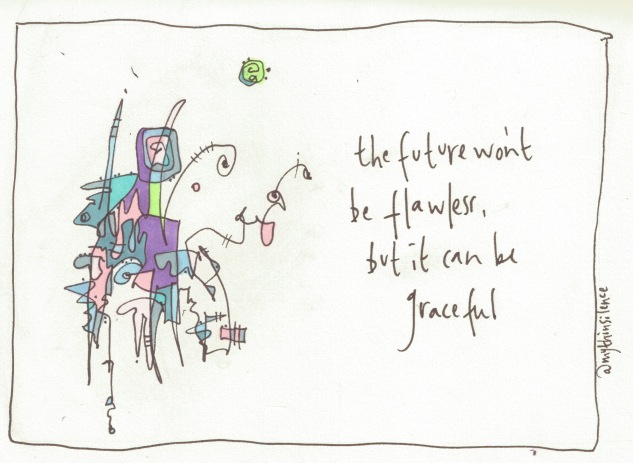 the future won't
be flawless,
but it can be
graceful
@mythinsilence